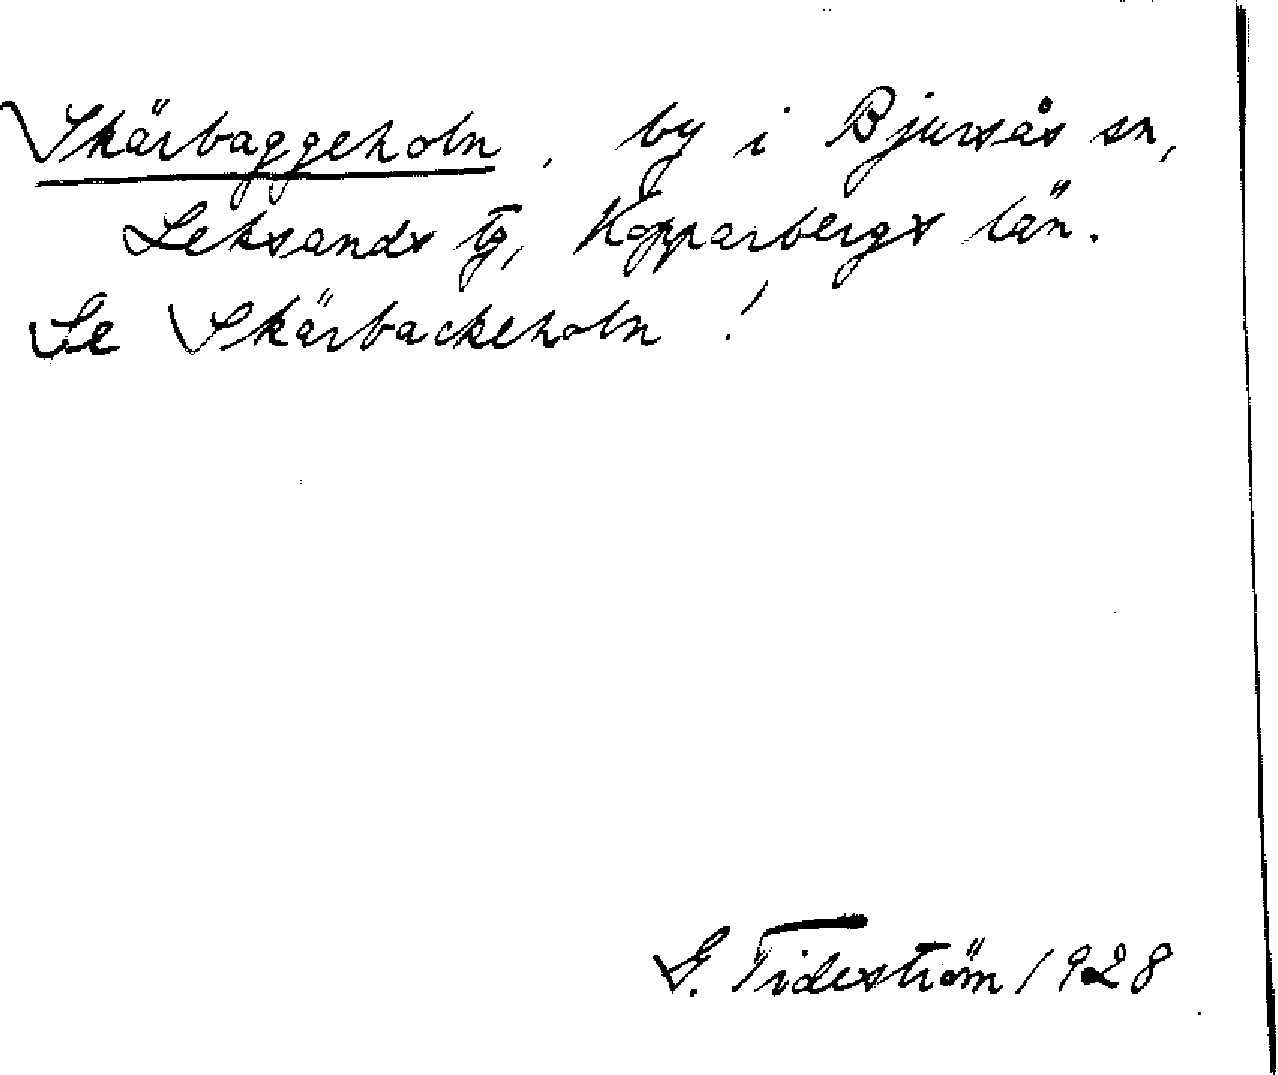 Skärbaggeholn, by i Bjursås sn,
Leksands tg, Kopparbergs län.
Se Skärbackeholn!
G. Tideström 1928